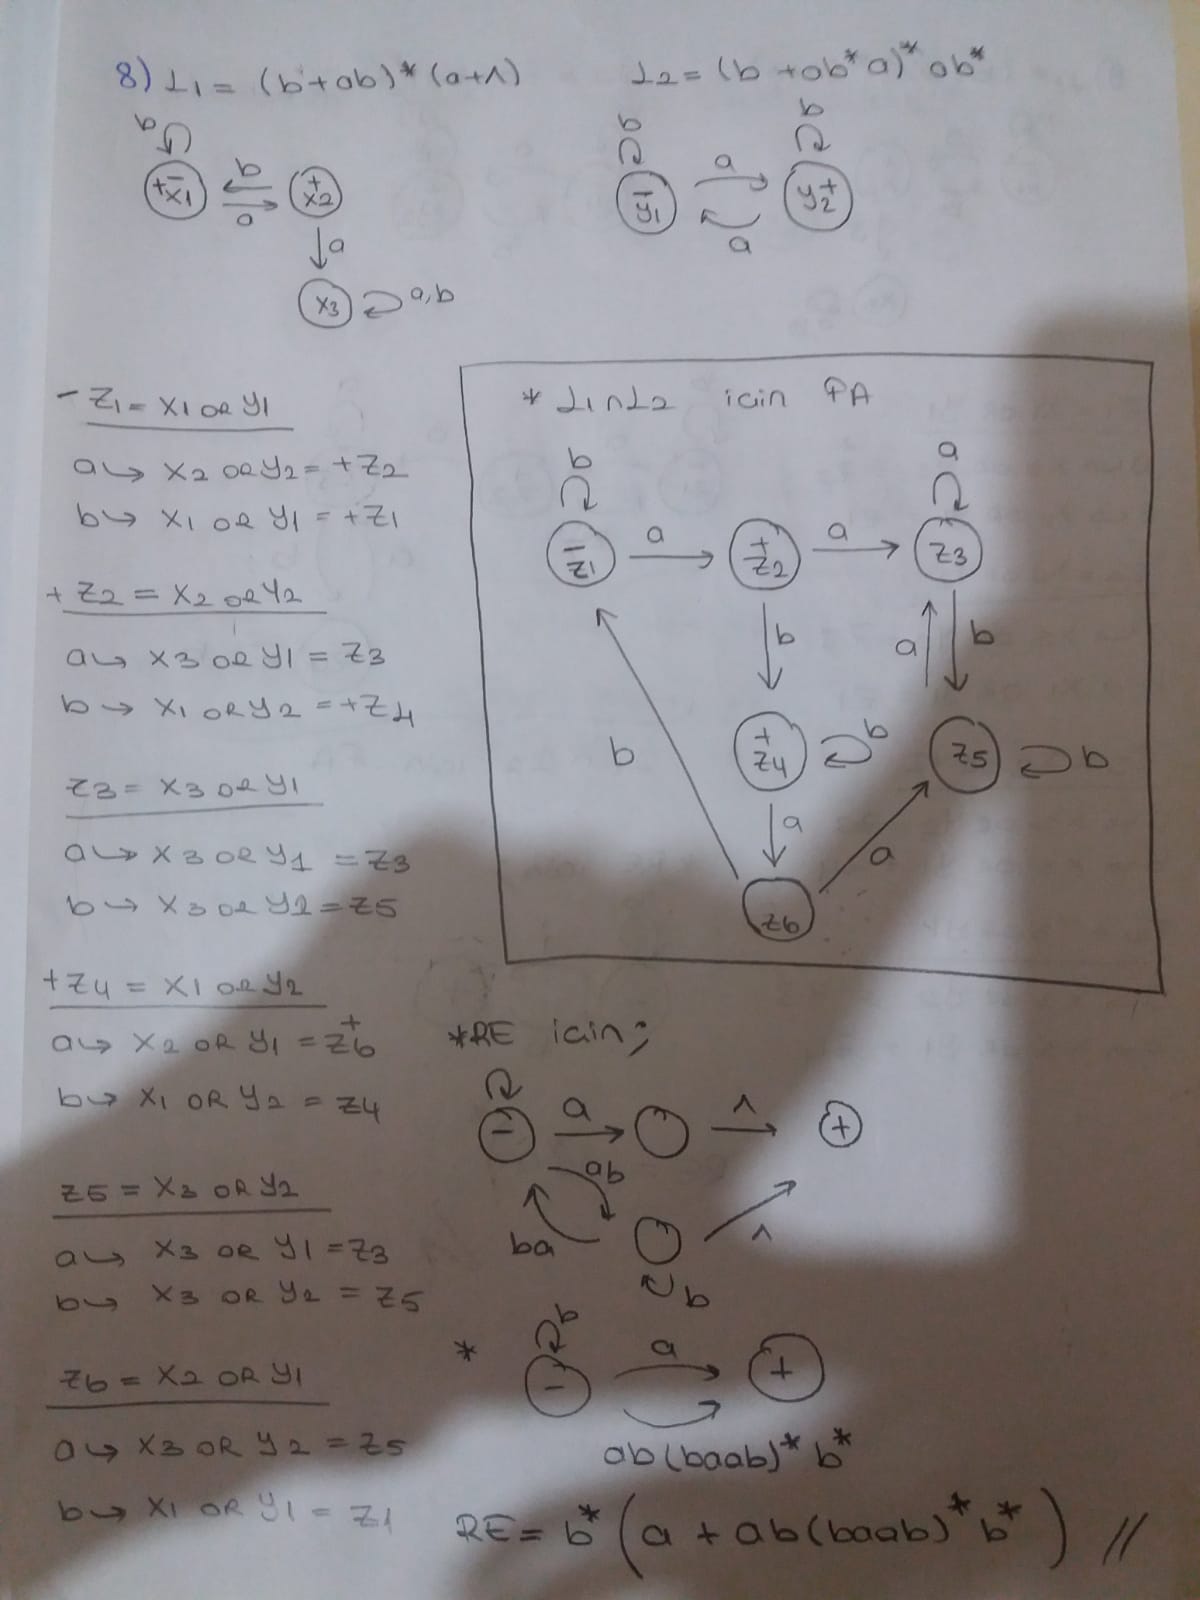 8) L1 = (b+ab)* (a+Λ)
L2 = (b + ab* a)* ab*
b
+- x1
b
a
+ x2
a
x3
a,b
b
- y1
a
a
b
y2 +
- Z1 = X1 OR Y1
a↪ X2 OR Y2 = +Z2
b↪ X1 OR Y1 = +Z1
+ Z2 = X2 OR Y2
a↪ X3 OR Y1 = Z3
b→ X1 OR Y2 = +Z4
Z3 = X3 OR Y1
a↪ X3 OR Y1 = Z3
b→ X3 OR Y2 = Z5
+Z4 = X1 OR Y2
a↪ X2 OR Y1 = Z6+
b↪ X1 OR Y2 = Z4
Z5 = X3 OR Y2
a↪ X3 OR Y1 = Z3
b↪ X3 OR Y2 = Z5
Z6 = X2 OR Y1
a↪ X3 OR Y2 = Z5
b↪ X1 OR Y1 = Z1
* L1∩L2 icin FA
b
- Z1
a
+ Z2
a
a
Z3
b
b
a
b
+ Z4
b
Z5
b
a
a
Z6
*RE icin;
-
a
Λ
+
ab
ba
Λ
b
*
b
-
a
+
ab(baab)* b*
RE = b* (a + ab(baab)* b*) //